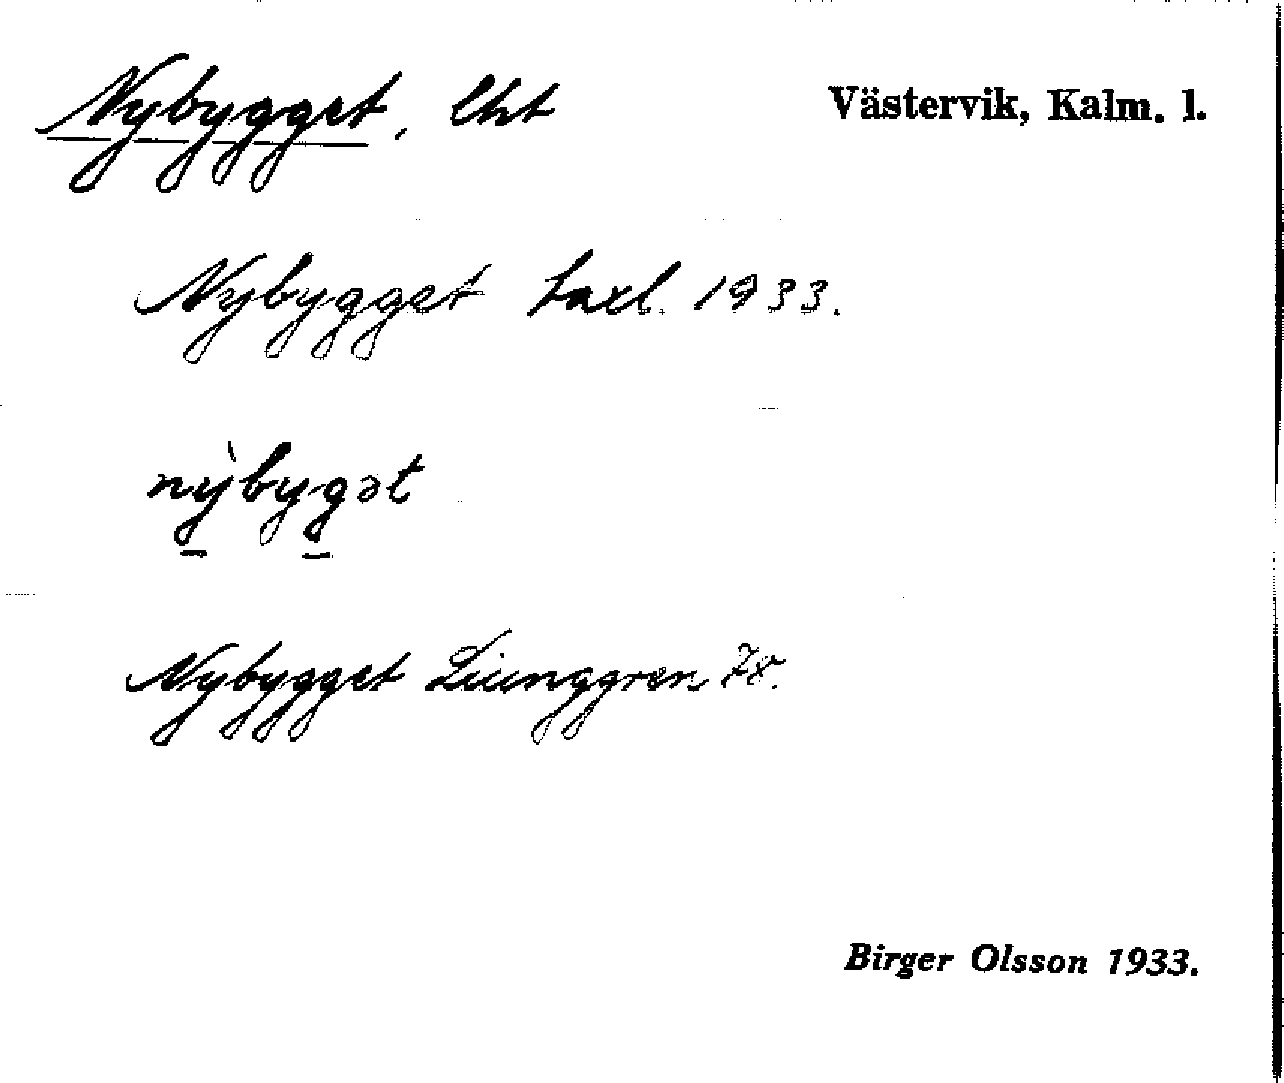 Nybygget, lht Västervik, Kalm. l.
Nybygget taxl. 1933.
nỳbygət
Nybygget Liunggren 78.
Birger Olsson 1933.